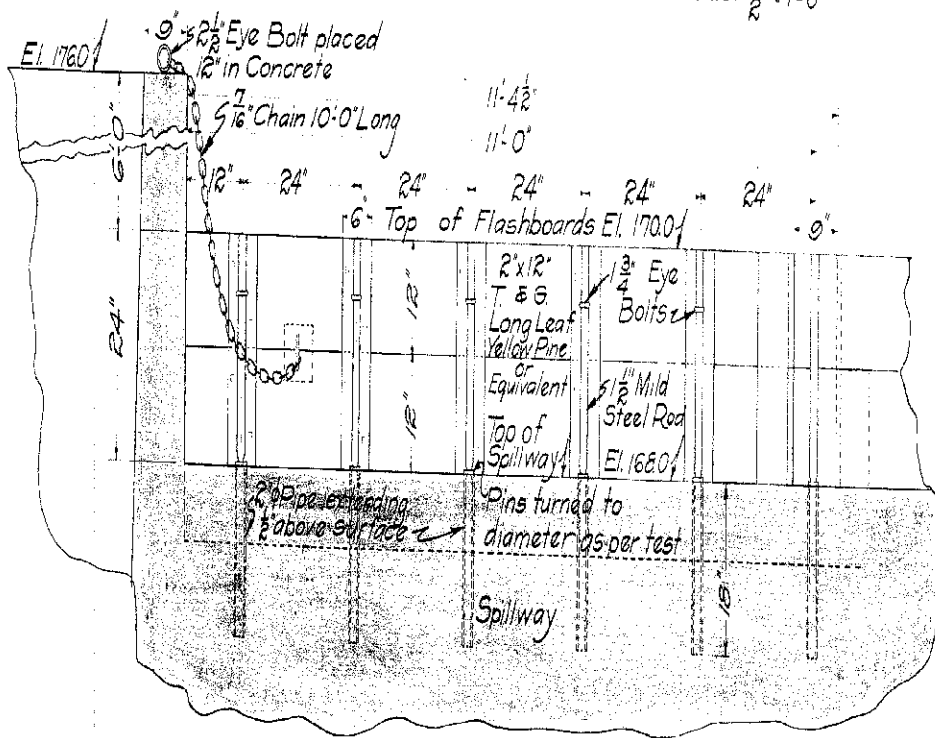 9"
2 1/2" Eye Bolt placed
12" in Concrete
El. 176.0
7/16" Chain 10'-0" Long
11'-4 1/2"
11'-0"
6'-0"
12"
24"
24"
24"
24"
24"
6"
Top of Flashboards El. 170.0
9"
24"
12"
12"
2" x 12"
T. & G.
Long Leaf
Yellow Pine
or
Equivalent
1 3/4" Eye
Bolts
1 1/2" Mild
Steel Rod
Top of
Spillway
El. 168.0
2" Pipe extending
1 1/2" above surface
Pins turned to
diameter as per test
18"
Spillway